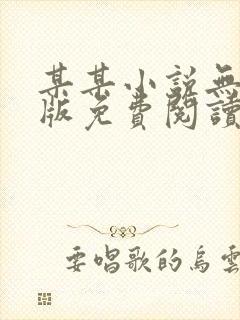 某某小說無
版免費閱讀
要唱歌的烏雲